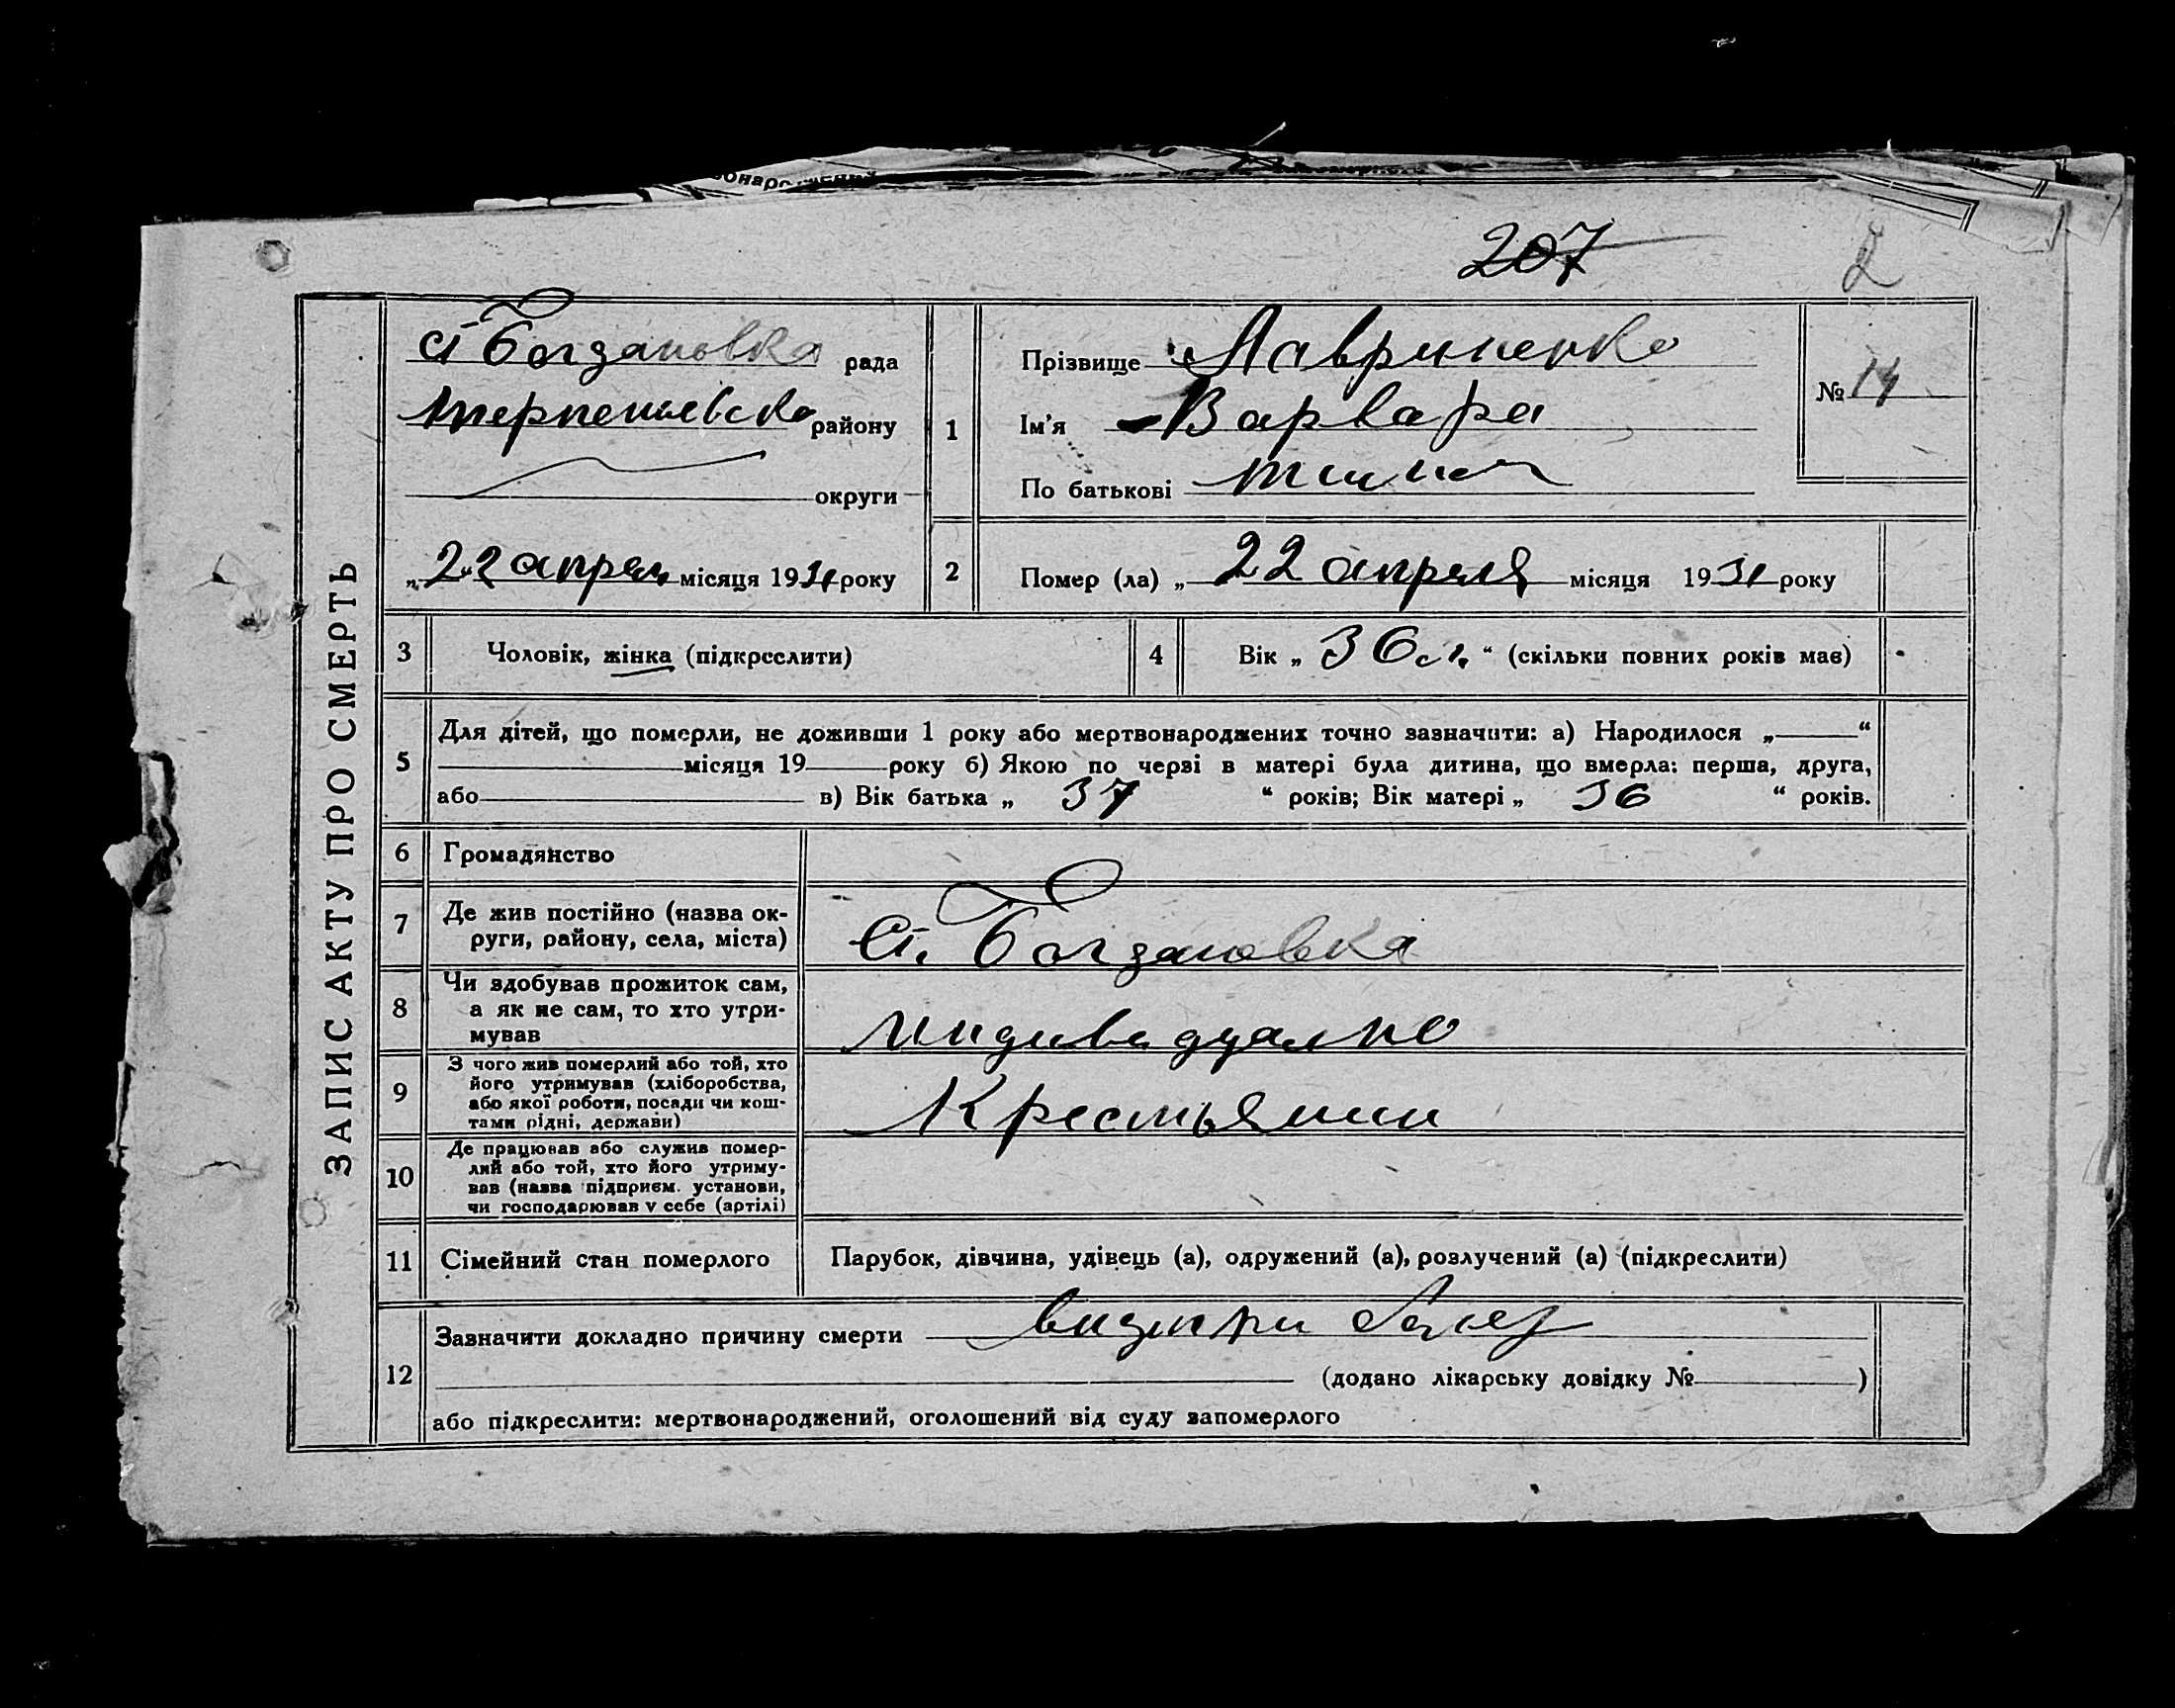 207
2
ЗАПИС АКТУ ПРО СМЕРТЬ
с. Богдановка рада
району
округи
„22“ апреля місяця 1931 року
1
Прізвище Лавриненко
Ім'я Варвара
По батькові
№ 14
2
Помер (ла) „22 апреля місяця 1931 року
3 Чоловік, жінка (підкреслити)
4 Вік „36 л.“ (скільки повних років має)
5
Для дітей, що померли, не доживши 1 року або мертвонароджених точно зазначити: а) Народилося „ “
місяця 19 року б) Якою по черзі в матері була дитина, що вмерла: перша, друга,
або в) Вік батька „ 37 “ років; Вік матері „ 36 “ років.
6 Громадянство
7 Де жив постійно (назва ок-
руги, району, села, міста)
с. Богдановка
8 Чи здобував прожиток сам,
а як не сам, то хто утри-
мував
индивидуално
9 З чого жив померлий або той, хто
його утримував (хліборобства,
або якої роботи, посади чи кош-
тами рідні, держави)
Крестьянин
10 Де працював або служив помер-
лий або той, хто його утриму-
вав (назва підприєм. установи,
чи господарював у себе (артілі)
11 Сімейний стан померлого Парубок, дівчина, удівець (а), одружений (а), розлучений (а) (підкреслити)
12
Зазначити докладно причину смерти
(додано лікарську довідку № )
або підкреслити: мертвонароджений, оголошений від суду запомерлого